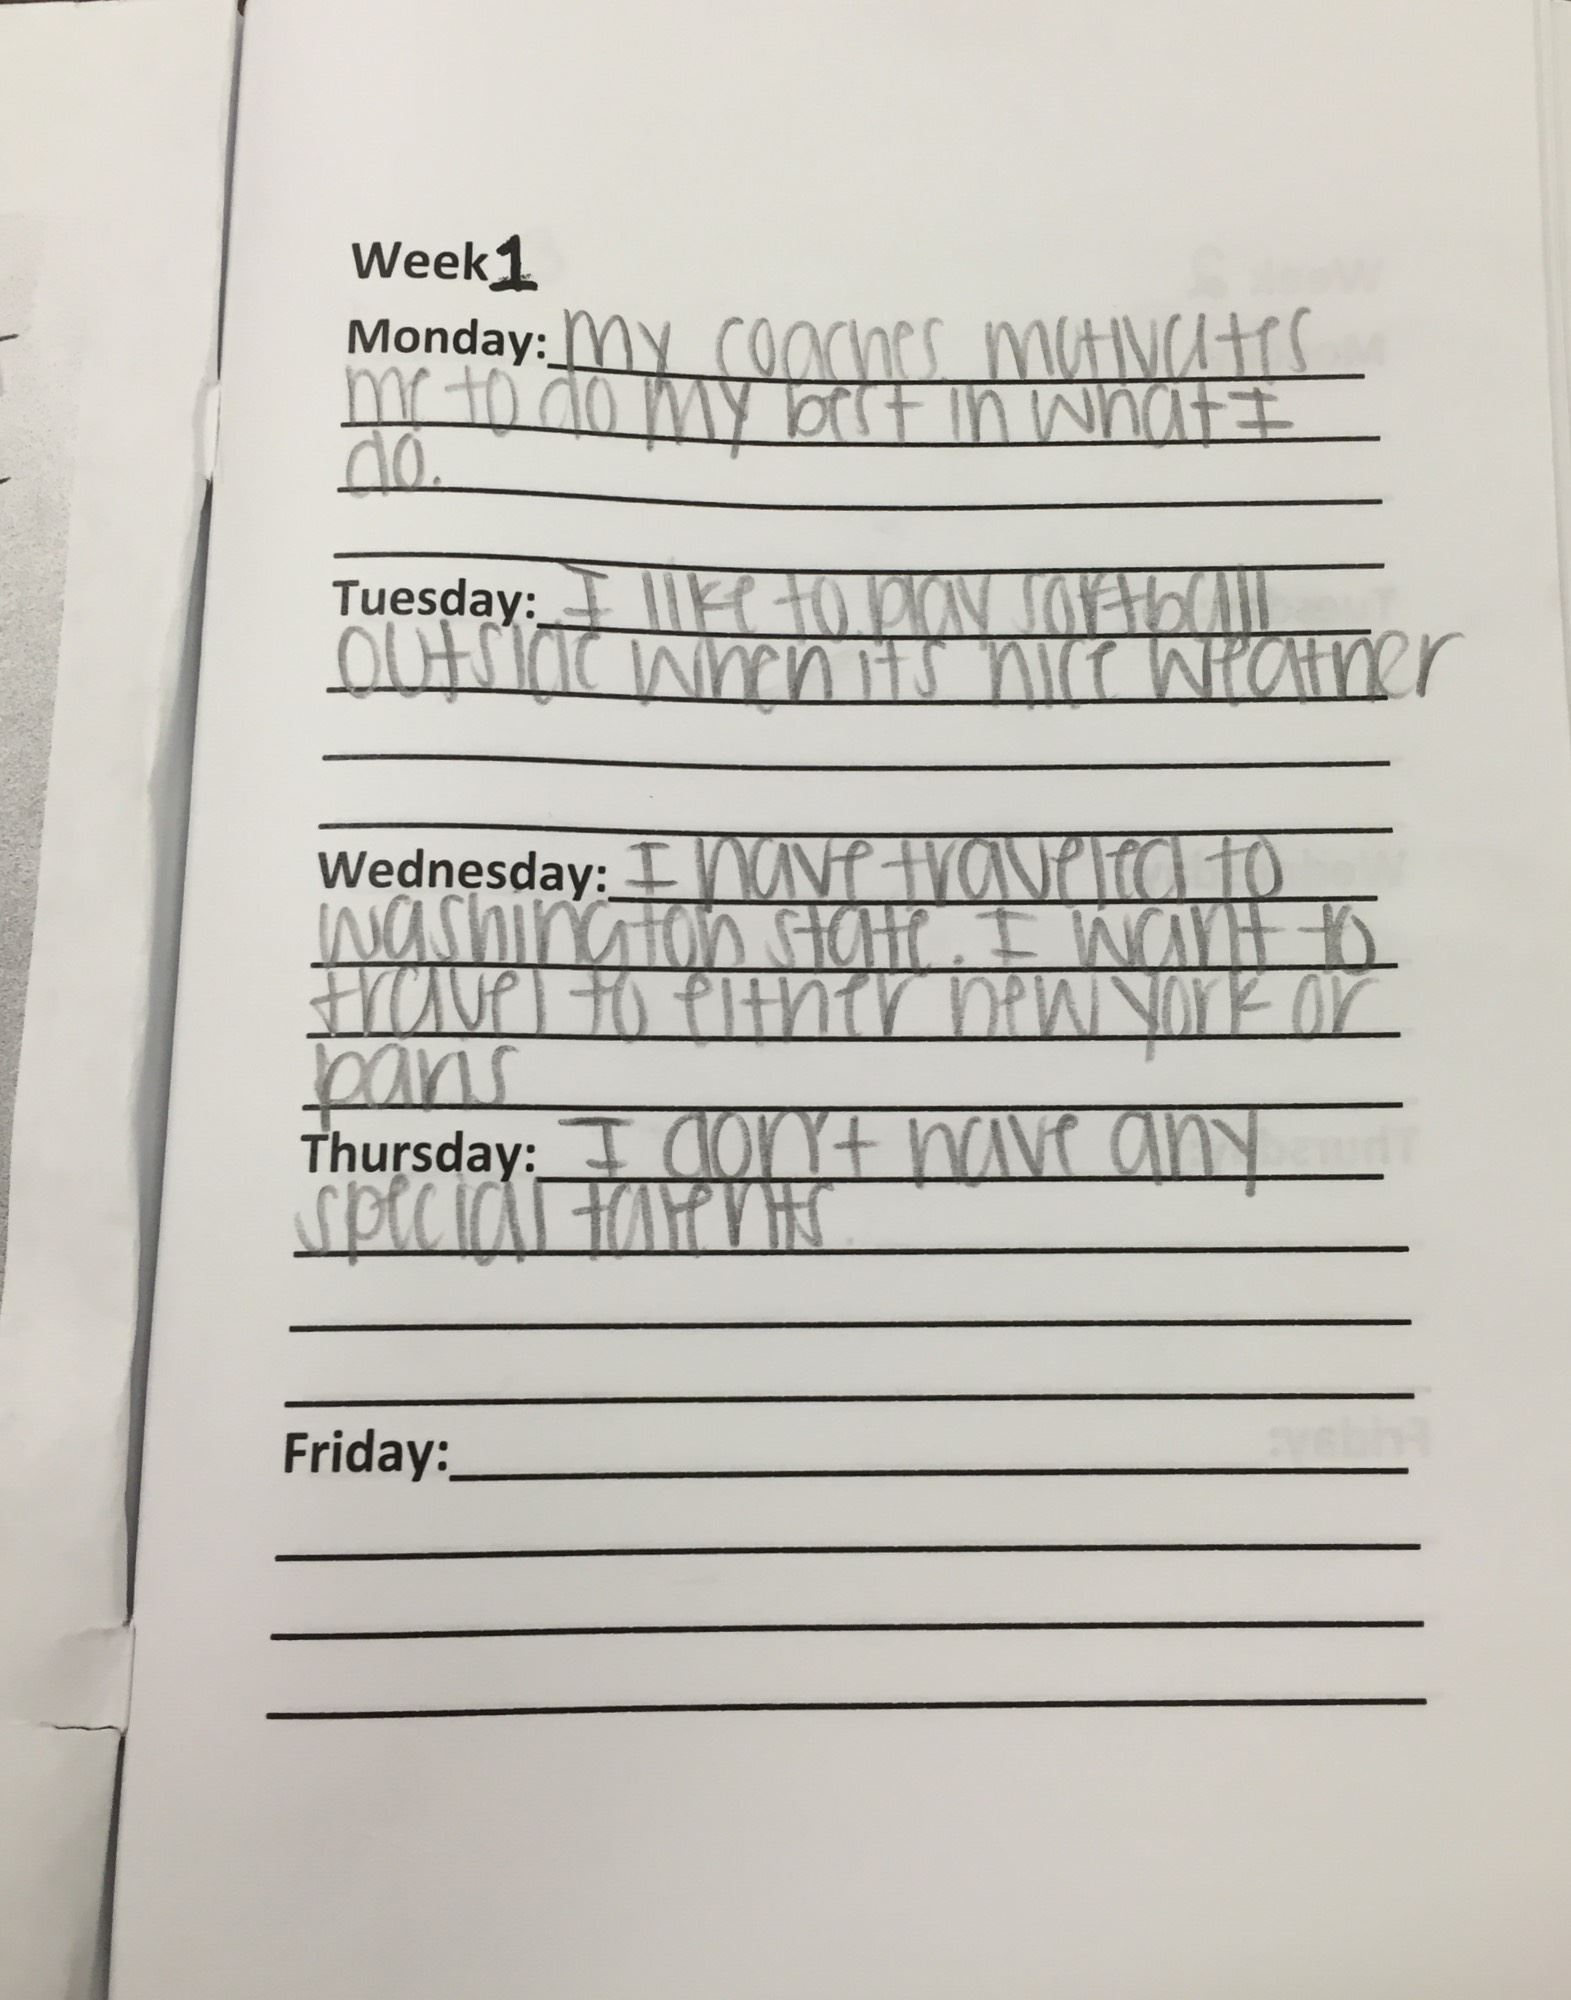 Week 1
Monday: My coaches motivates
me to do my best in what I
do.
Tuesday: I like to play softball
outside when its nice weather
Wednesday: I have traveled to
washington state. I want to
travel to either new york or
paris
Thursday: I don't have any
special talents.
Friday: